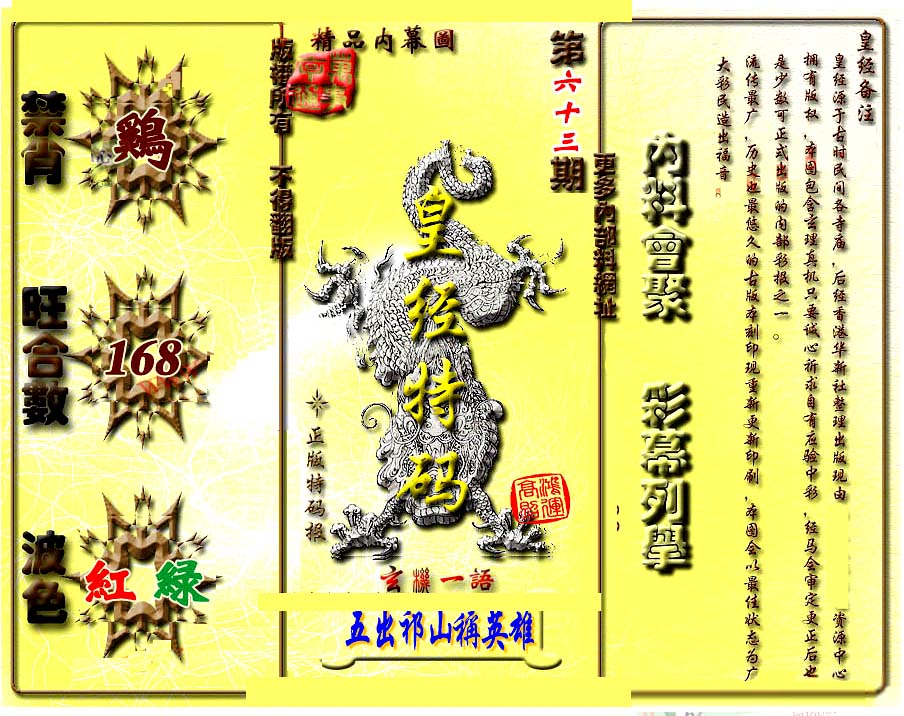 皇经备注
皇经源于古时民间各寺庙,后经香港华新社整理出版现由 资源中心
拥有版权,本图包含玄理真机只要诚心祈求自有应验中彩,经马会审定更正后也
是少数可正式出版的内部彩报之一。
流传最广,历史也最悠久的古版本刻印现重新更新印刷,本图会以最佳状态为广
大彩民造出福音
內料會聚 彩幕列舉
更多內部料網址
第六十三期
精品内幕圖
皇经特码
正版特码报
鴻運高照
玄機一語
五出祁山稱英雄
版權所有 不得翻版
禁肖
鷄
旺合數
168
波色
紅 綠